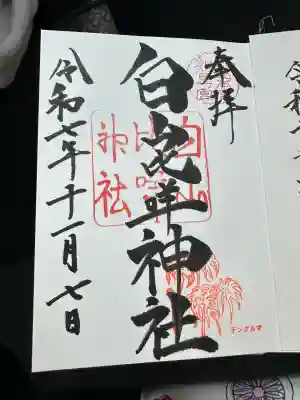 奉拝
白山比咩神社
白山
比咩
神社
令和七年十一月七日
チングルマ